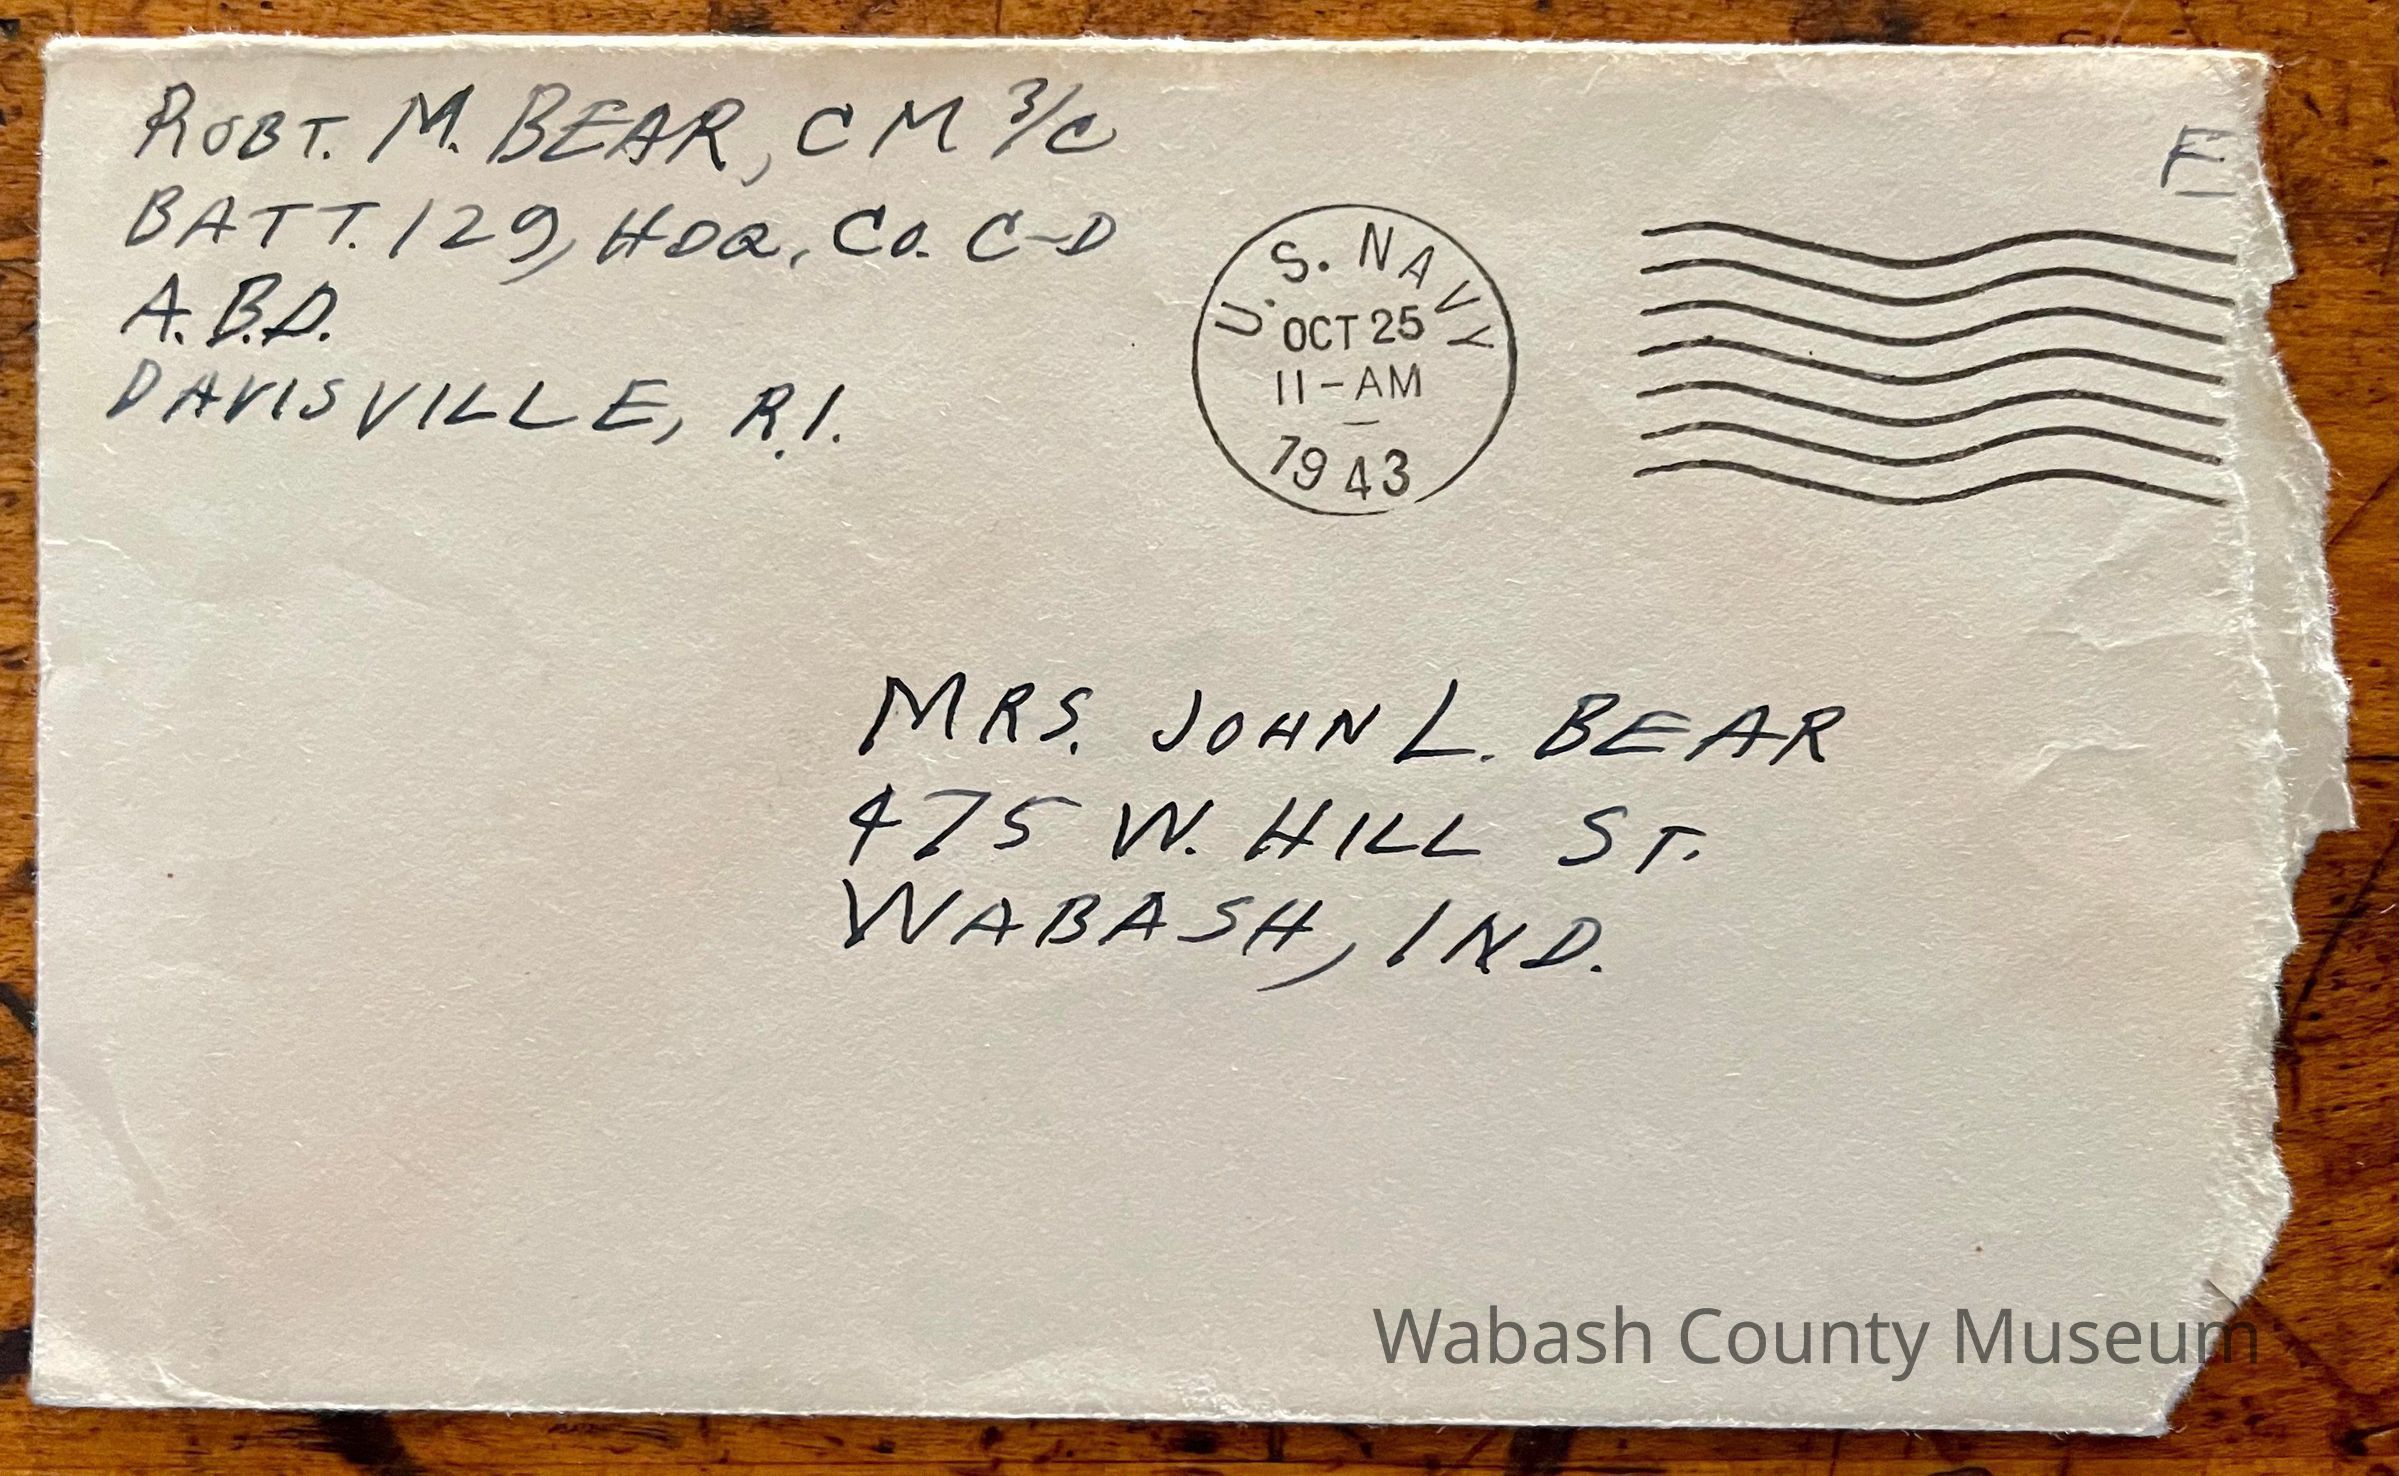 ROBT. M. BEAR, CM 3/C
BATT. 129, HDQ. Co. C-D
A.B.D.
DAVISVILLE, R.I.
F
U.S. NAVY
OCT 25
11-AM
1943
MRS. JOHN L. BEAR
475 W. HILL ST.
WABASH, IND.
Wabash County Museum